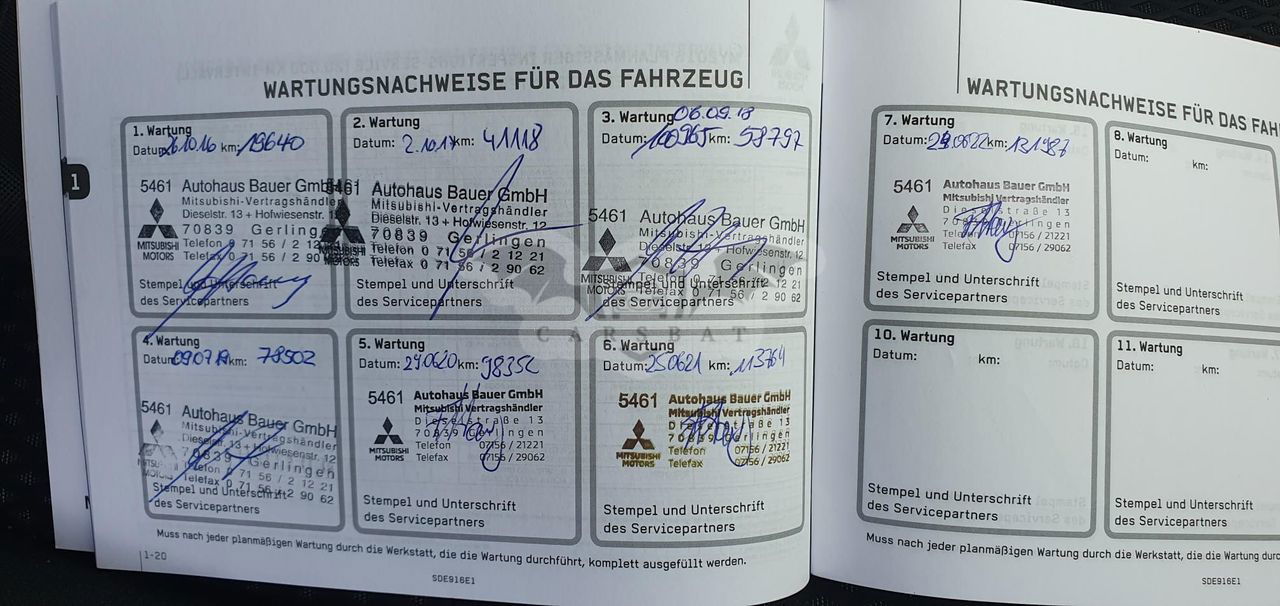 WARTUNGSNACHWEISE FÜR DAS FAHRZEUG
1
1. Wartung
Datum: 26.10.16 km: 19640
5461 Autohaus Bauer GmbH
Mitsubishi-Vertragshändler
Dieselstr. 13 + Hofwiesenstr. 12
70839 Gerling
MITSUBISHI MOTORS
Telefon 0 71 56 / 2 12
Telefax 0 71 56 / 2 90
Stempel und Unterschrift
des Servicepartners
2. Wartung
Datum: 2.10.17 km: 41118
5461 Autohaus Bauer GmbH
Mitsubishi-Vertragshändler
Dieselstr. 13 + Hofwiesenstr. 12
70839 Gerlingen
Telefon 0 71 56 / 2 12 21
Telefax 0 71 56 / 2 90 62
Stempel und Unterschrift
des Servicepartners
3. Wartung
06.09.18
Datum: km: 58797
5461 Autohaus Bauer GmbH
Mitsubishi-Vertragshändler
Dieselstr. 13 + Hofwiesenstr. 12
70839 Gerlingen
MITSUBISHI MOTORS
Telefon 0 71 56 / 2 12 21
Telefax 0 71 56 / 2 90 62
Stempel und Unterschrift
des Servicepartners
CARSBAT
4. Wartung
Datum: 090719 km: 78502
5461 Autohaus Bauer GmbH
Mitsubishi-Vertragshändler
Dieselstr. 13 + Hofwiesenstr. 12
70839 Gerlingen
Telefon 0 71 56 / 2 12 21
Telefax 0 71 56 / 2 90 62
Stempel und Unterschrift
des Servicepartners
5. Wartung
Datum: 290620 km: 98352
5461 Autohaus Bauer GmbH
Mitsubishi Vertragshändler
Dieselstraße 13
70839 Gerlingen
MITSUBISHI MOTORS
Telefon 07156 / 21221
Telefax 07156 / 29062
Stempel und Unterschrift
des Servicepartners
6. Wartung
Datum: 250621 km: 113764
5461 Autohaus Bauer GmbH
Mitsubishi Vertragshändler
Dieselstraße 13
70839 Gerlingen
MITSUBISHI MOTORS
Telefon 07156 / 21221
Telefax 07156 / 29062
Stempel und Unterschrift
des Servicepartners
Muss nach jeder planmäßigen Wartung durch die Werkstatt, die die Wartung durchführt, komplett ausgefüllt werden.
1-20
SDE916E1
WARTUNGSNACHWEISE FÜR DAS FAH
7. Wartung
Datum: 290622 km: 131987
5461 Autohaus Bauer GmbH
Mitsubishi Vertragshändler
Dieselstraße 13
MITSUBISHI MOTORS
Telefon 07156 / 21221
Telefax 07156 / 29062
Stempel und Unterschrift
des Servicepartners
8. Wartung
Datum: km:
Stempel und Unterschrift
des Servicepartners
10. Wartung
Datum: km:
Stempel und Unterschrift
des Servicepartners
11. Wartung
Datum: km:
Stempel und Unterschrift
des Servicepartners
Muss nach jeder planmäßigen Wartung durch die Werkstatt, die die Wartung dur
SDE916E1